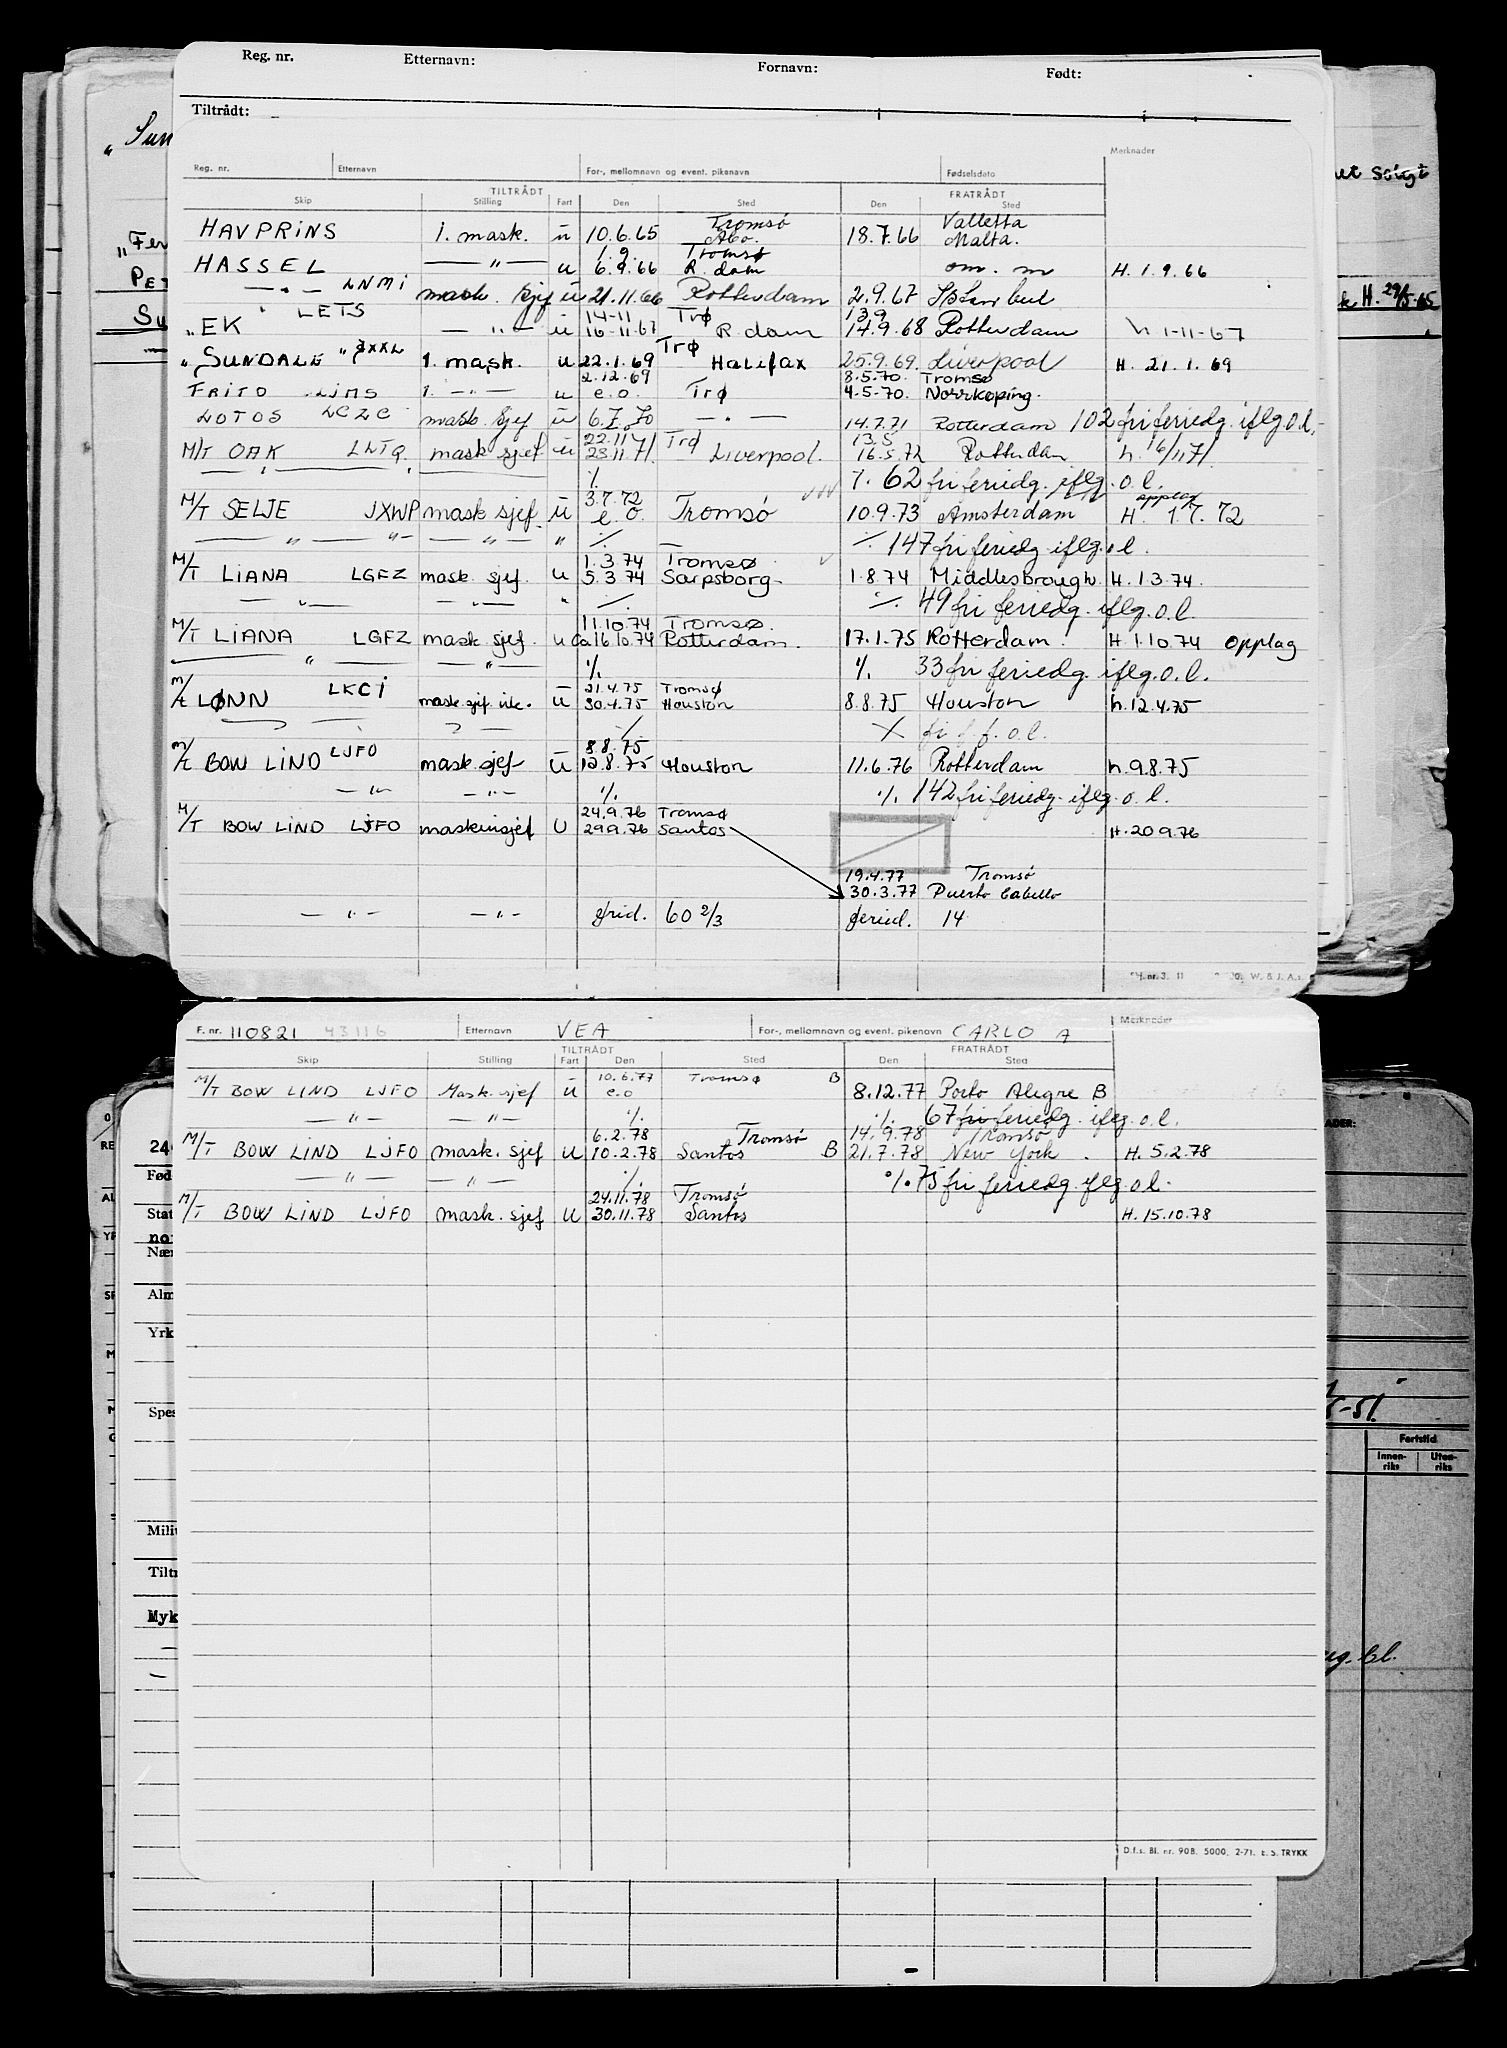 Reg. nr. Etternavn: Fornavn: Født:
Tiltrådt:
Merknader
Reg. nr. Etternavn For-, mellomnavn og event. pikenavn Fødselsdato
TILTRÅDT FRATRÅDT
Skip Stilling Fart Den Sted Den Sted
Tromsö Valletta
HAVPRINS 1. mask. ü 10.6.65 Åbo. 18.7.66 Malta.
1.9. Tromsø
HASSEL — " — u 6.9.66 R. dam om. m H. 1.9.66
— " — LNMI mask. sjef ü 21.11.66 Rotterdam 2.9.67 Istanbul
LETS 14-11 Trø 13.9
"EK — " — ü 16-11-67 R. dam 14.9.68 Rotterdam h 1-11-67
Trø
"SUNDALE" JXXL 1. mask. u 22.1.69 Halifax 25.9.69. Liverpool H. 21.1.69
2.12.69 8.5.70. Tromsø
FRITO LJMS 1. — " — u e.o. Trø 4.5.70. Norrkøping.
LOTOS LCZC mask. sjef ü 6.7.70 — " — 14.7.71 Rotterdam 102 fri feriedg. iflg o.l.
22.11 Trø 13.5
M/T OAK LLTQ mask sjef ü 23.11.71. Liverpool. 16.5.72 Rotterdam h. 16/11 71.
— " — % %. 62 fri feriedg. iflg. o.l.
3.7.72 opplag
M/T SELJE JXWP mask sjef ü e.o. Tromsö 10.9.73 Amsterdam H. 1.7.72
— " — " — — " — " % — % 147 fri feriedg iflg. o.l.
1.3.74 Tromsø
M/T LIANA LGFZ mask. sjef. u 5.3.74 Sarpsborg 1.8.74 Middlesbrough. H. 1.3.74.
— " — — " — " %. %. 49 fri feriedg. iflg. o.l.
11.10.74 Tromsø.
M/T LIANA LGFZ mask. sjef. u ca 16.10.74 Rotterdam. 17.1.75 Rotterdam. H. 1.10.74 opplag
— " — — " — %. %. 33 fri feriedg. iflg. o.l.
21.4.75 Tromsø
M/T LØNN LKCI mask. sjef. ü 30.4.75 Houston 8.8.75 Houston h. 12.4.75
8.8.75
M/T BOW LIND LJFO mask. sjef ü 12.8.75 Houston 11.6.76 Rotterdam h. 9.8.75
— " — — " — %. %. 142 fri feriedg. iflg. o.l.
24.9.76 Tromsø
M/T BOW LIND LJFO maskinsjef U 29.9.76 Santos H. 20.9.76
19.4.77 Tromsö
30.3.77 Puerto Cabello
— " — — " — frid. 60 2/3 feried. 14
W. & J. A.s.
F. nr. 110821 43116 Etternavn VEA For-, mellomnavn og event. pikenavn CARLO A Merknader
TILTRÅDT FRATRÅDT
Skip Stilling Fart Den Sted Den Sted
10.6.77 Tromsø B
M/T BOW LIND LJFO Mask. sjef ü e.o 8.12.77 Porto Alegre B
— " — — " — %. %. 67 fri feriedg. iflg. o.l.
6.2.78 Tromsö 14.9.78 Tromsö
M/T BOW LIND LJFO mask. sjef u 10.2.78 Santos B 21.7.78 New York. H. 5.2.78
— " — — " — %. %. 75 fri feriedg iflg o.l.
24.11.78 Tromsö
M/T BOW LIND LJFO mask. sjef u 30.11.78 Santos H. 15.10.78
D.f.s. Bl. nr. 90B. 5000, 2-71. E.S. TRYKK